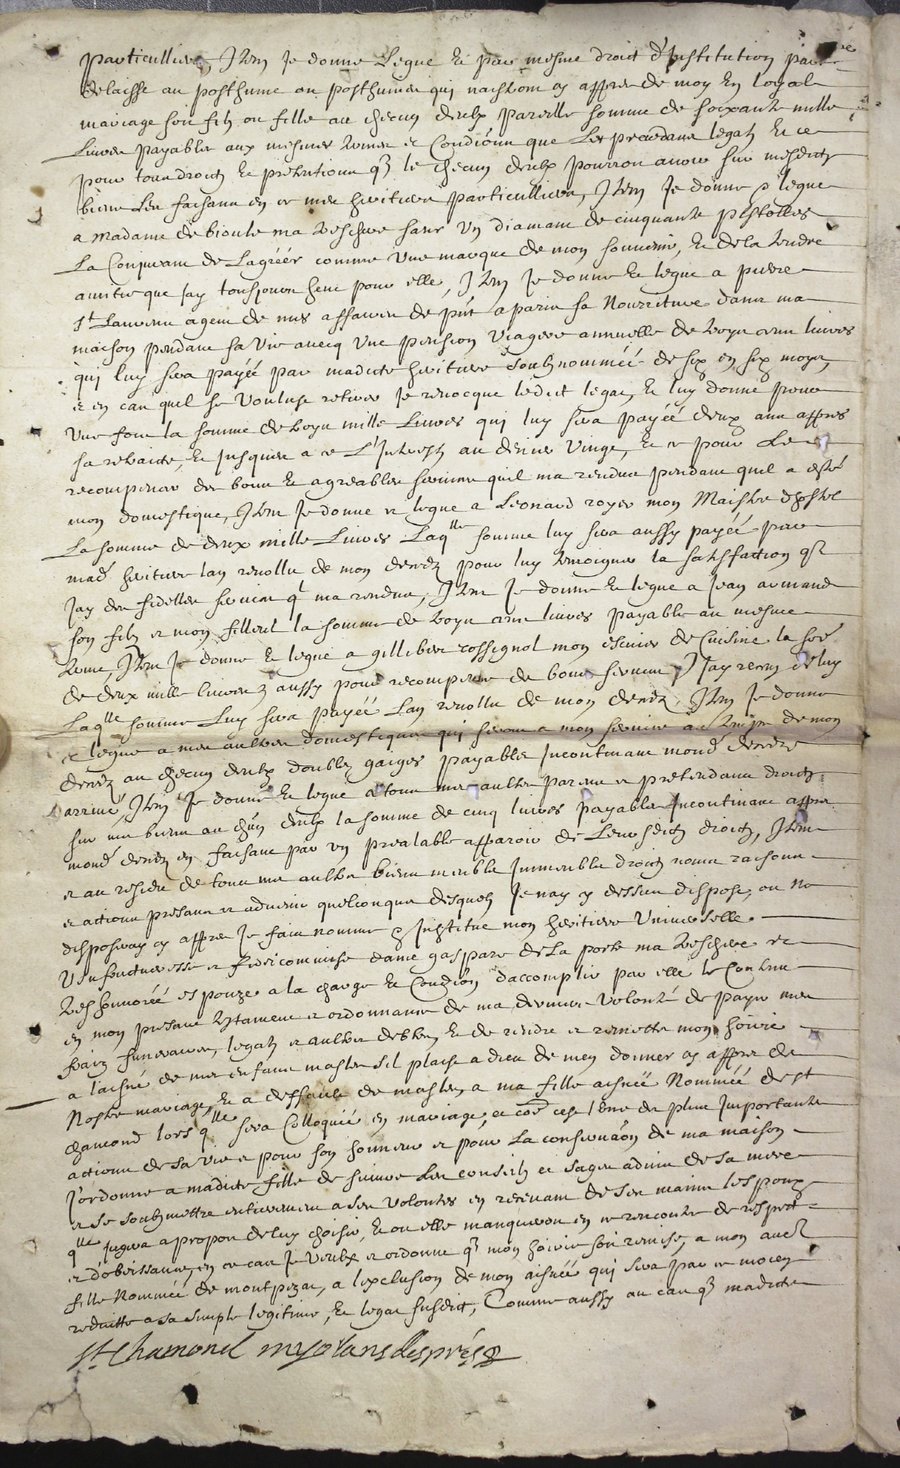 particulliere, Item Je donne Legue et par mesme droit d'Institution
delaisse au posthume ou posthumes qui naistront cy appres de moy en loyal
mariage soit filz ou fille au chacun deulx pareille somme de soixante mille
Livres payable aux mesmes termes et Condiõns que Les precedans legatz et ce
pour tous droitz et pretentions q̃ le chacun deulx pourroit avoir sur mesditz
biens Les faisant en ce mes heritiers particulliers, Item Je donne & legue
a Madame de bioule ma treschere sœur Un diamant de cinquante pistolles
La Conjurant de L'agréér comme une marque de mon souvenir, et de la tendre
amitié que Jay tousjours heue pour elle, Item Je donne et legue a pierre
St Laurens agent de mes affaires de pñt a paris sa Nourriture dans ma
maison pendant sa vie avecq une pension viagere annuelle de troys cens livres
qui luy sera payéé par madicte heritiere soubz nomméé de six en six moys,
et en cas quel se voulust retirer Je revocque ledict legat, et luy donne pour
une fois la somme de troys mille Livres qui luy sera payéé deux ans appres
sa retraite, et Jusques a ce L'Interest au denier vingt, et ce pour Le
recompenser des bons et agreables services quil ma rendus pendant quil a esté
mon domestique, Item Je donne et legue a Leonard royer mon Maistre dhostel
La somme de deux mille Livres Laqlle somme luy sera aussy payéé par
mad heritiere lan revollu de mon decedz pour luy temoigner la satisfaction q̃
Jay des fidelles services ql ma rendus, Item Je donne et legue a Jean armand
son filz et mon filleul la somme de troys cens livres payable au mesme
terme, Item Je donne et legue a gillibert rossignol mon escuier de Cuisine la soẽ
de deux mille livres aussy pour recompense des bons services q̃ Jay receu de luy
Laqlle somme Luy sera payéé Lan revollu de mon decedz, Item Je donne
et legue a mes aultres domestiques qui seront a mon service au temps de mon
decedz au chacun deulx doubles gaiges payables Incontinant mond decedz
arrivé, Item Je donne et legue a tous mes aultres parens et pretendans droitz
sur mes biens au chũn deulx la somme de cinq livres payables Incontinant appres
mond decedz en faisant par un prealable apparoir de Leursditz droitz, Item
et au residu de tous mes aultres biens meuble Immeuble droitz noms raisons
et actions presans et advenir quelconques desquelz Je nay cy dessus disposé, ou ne
disposeray cy appres Je fais nomme & Institue mon heritiere Universelle
Usufructueresse et fideicommise dame gaspare de La porte ma treschere et
treshonoréé espouze a la charge et Condiõn d'accomplir par elle le Contenu
en mon presant testament et ordonnance de ma derniere volonté de payer mes
fraiz funeraires, legatz et aultres debtes et de rendre et remettre mon hoirie
a laisné de mes enfans masles sil plaist a dieu de men donner cy appres de
Nostre mariage, et a deffault de masles, a ma fille aisnéé Nomméé de St
chamond lors qlle sera Colloquéé en mariage et coẽ cest lune des plus Importante
actions de sa vie et pour son honneur et pour La conservaõn de ma maison
J'ordonne a madicte fille de suivre Les conseilz et sages advis de sa mere
et se soubzmettre entierement a ses volontes en recevant de ses mains lespoux
qlle jugera a propos de luy choisir, et ou elle manqueroit en ce rencontre de respect
et d'obeissance, en ce cas Je veulx et ordonne q̃ mon hoirie soit remise, a mon autre
fille Nomméé de montpezat, a lexclusion de mon aisnéé qui sera par ce moien
reduitte a sa simple legitime, et legat susdict, Comme aussy au cas q̃ madicte
St Chamond myolans després